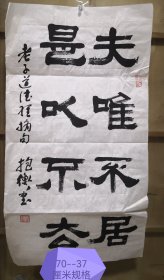 夫唯不居
是以不去
老子道德经摘句
抱樸书
70--37
厘米规格